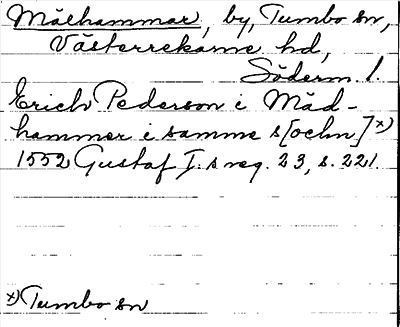 Målhammar, by, Tumbo sn,
Västerrekarne hd,
Söderm. l.
Erich Pederson i Mäd-
hammer i samme s[ochn] x)
1552 Gustaf I:s reg. 23, s. 221.
x) Tumbo sn